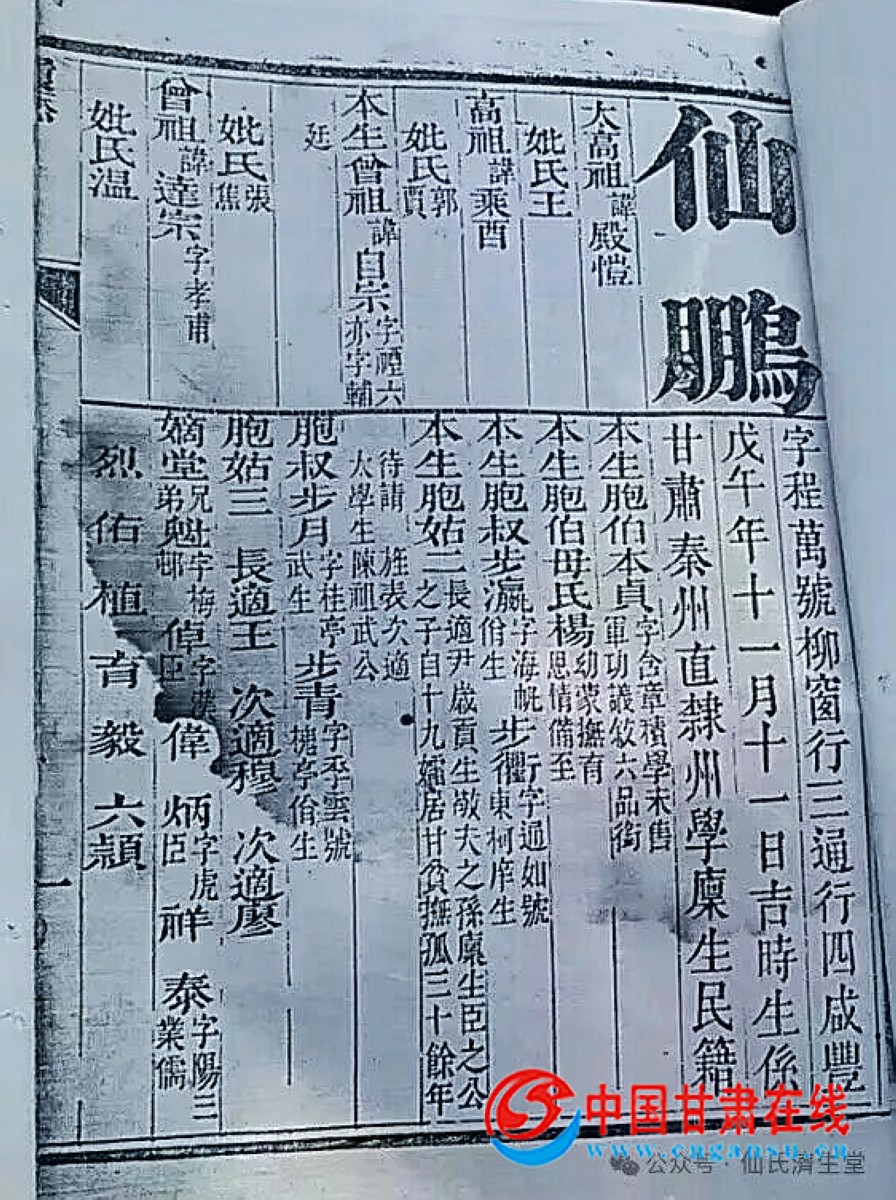 仙鵬
太高祖諱殿愷
妣氏王
高祖諱乘酉
妣氏郭
賈
本生曾祖諱自宗字禋六
亦字輔
廷
妣氏張
焦
曾祖諱達宗字孝甫
妣氏溫
字程萬號柳窗行三通行四咸豐
戊午年十一月十一日吉時生係
甘肅秦州直隸州學廩生民籍
本生胞伯本貞字含章積學未售
軍功議敘六品銜
本生胞伯母氏楊幼蒙撫育
恩情備至
本生胞叔步瀛字海帆
佾生
步衢字通如號
東柯庠生
本生胞姑二長適尹歲貢生敬夫之孫廩生臣之公
之子自十九孀居甘貧撫孤三十餘年
待請旌表次適
太學生陳祖武公
胞叔步月字桂亭
武生
步青字平雲號
槐亭佾生
胞姑三 長適王 次適穆 次適廖
嫡堂兄
弟魁字梅
邨
偉臣
偉炳字虎
臣
祥泰字陽三
業儒
烈佑植育毅六顯
一
中国甘肃在线
www.cngansu.cn
公众号·仙氏濟生堂